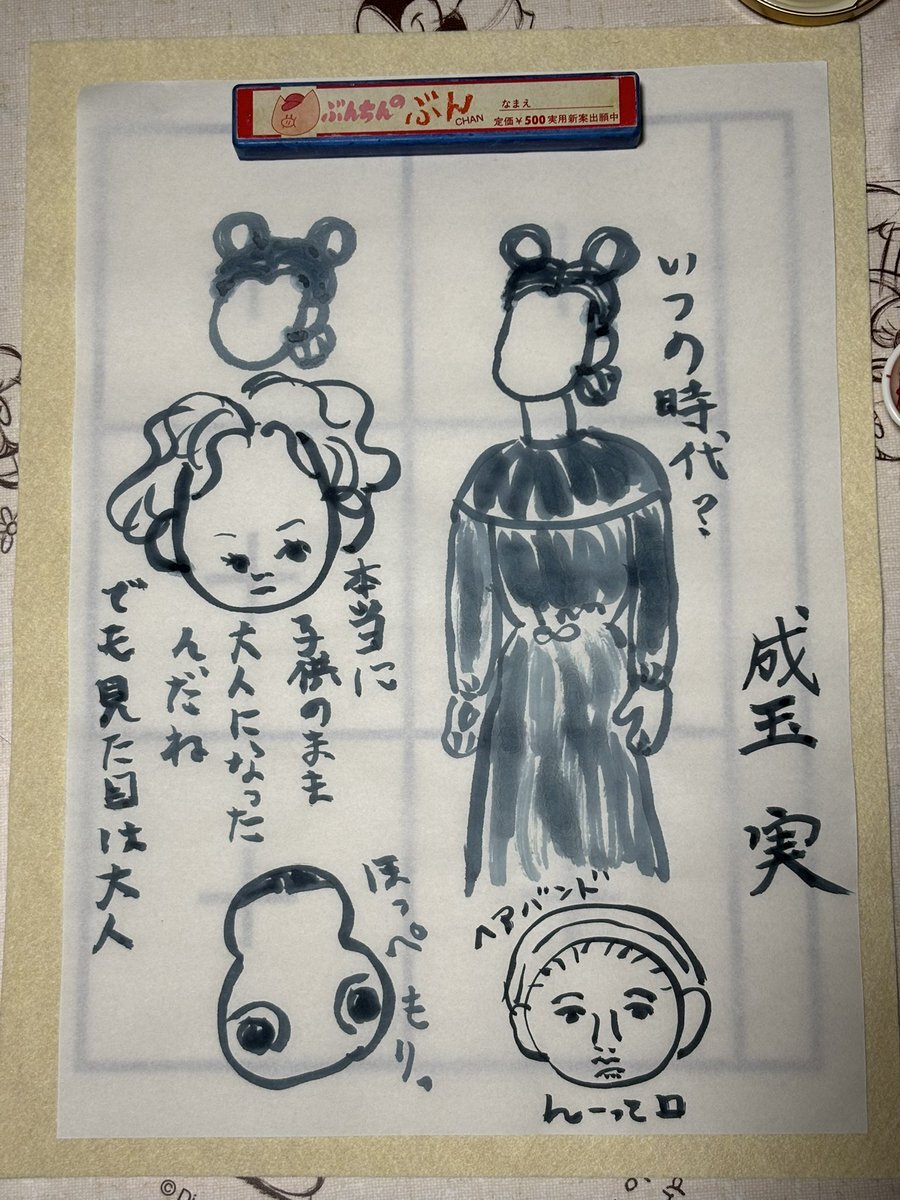 ぶんちんの ぶん CHAN
なまえ
定価¥500 実用新案出願中
いつの時代?
成玉 実
本当に
子供のまま
大人になった
んだね
でも見た目は大人
ほっぺもりっ
ヘアバンド
んーって口
©Di